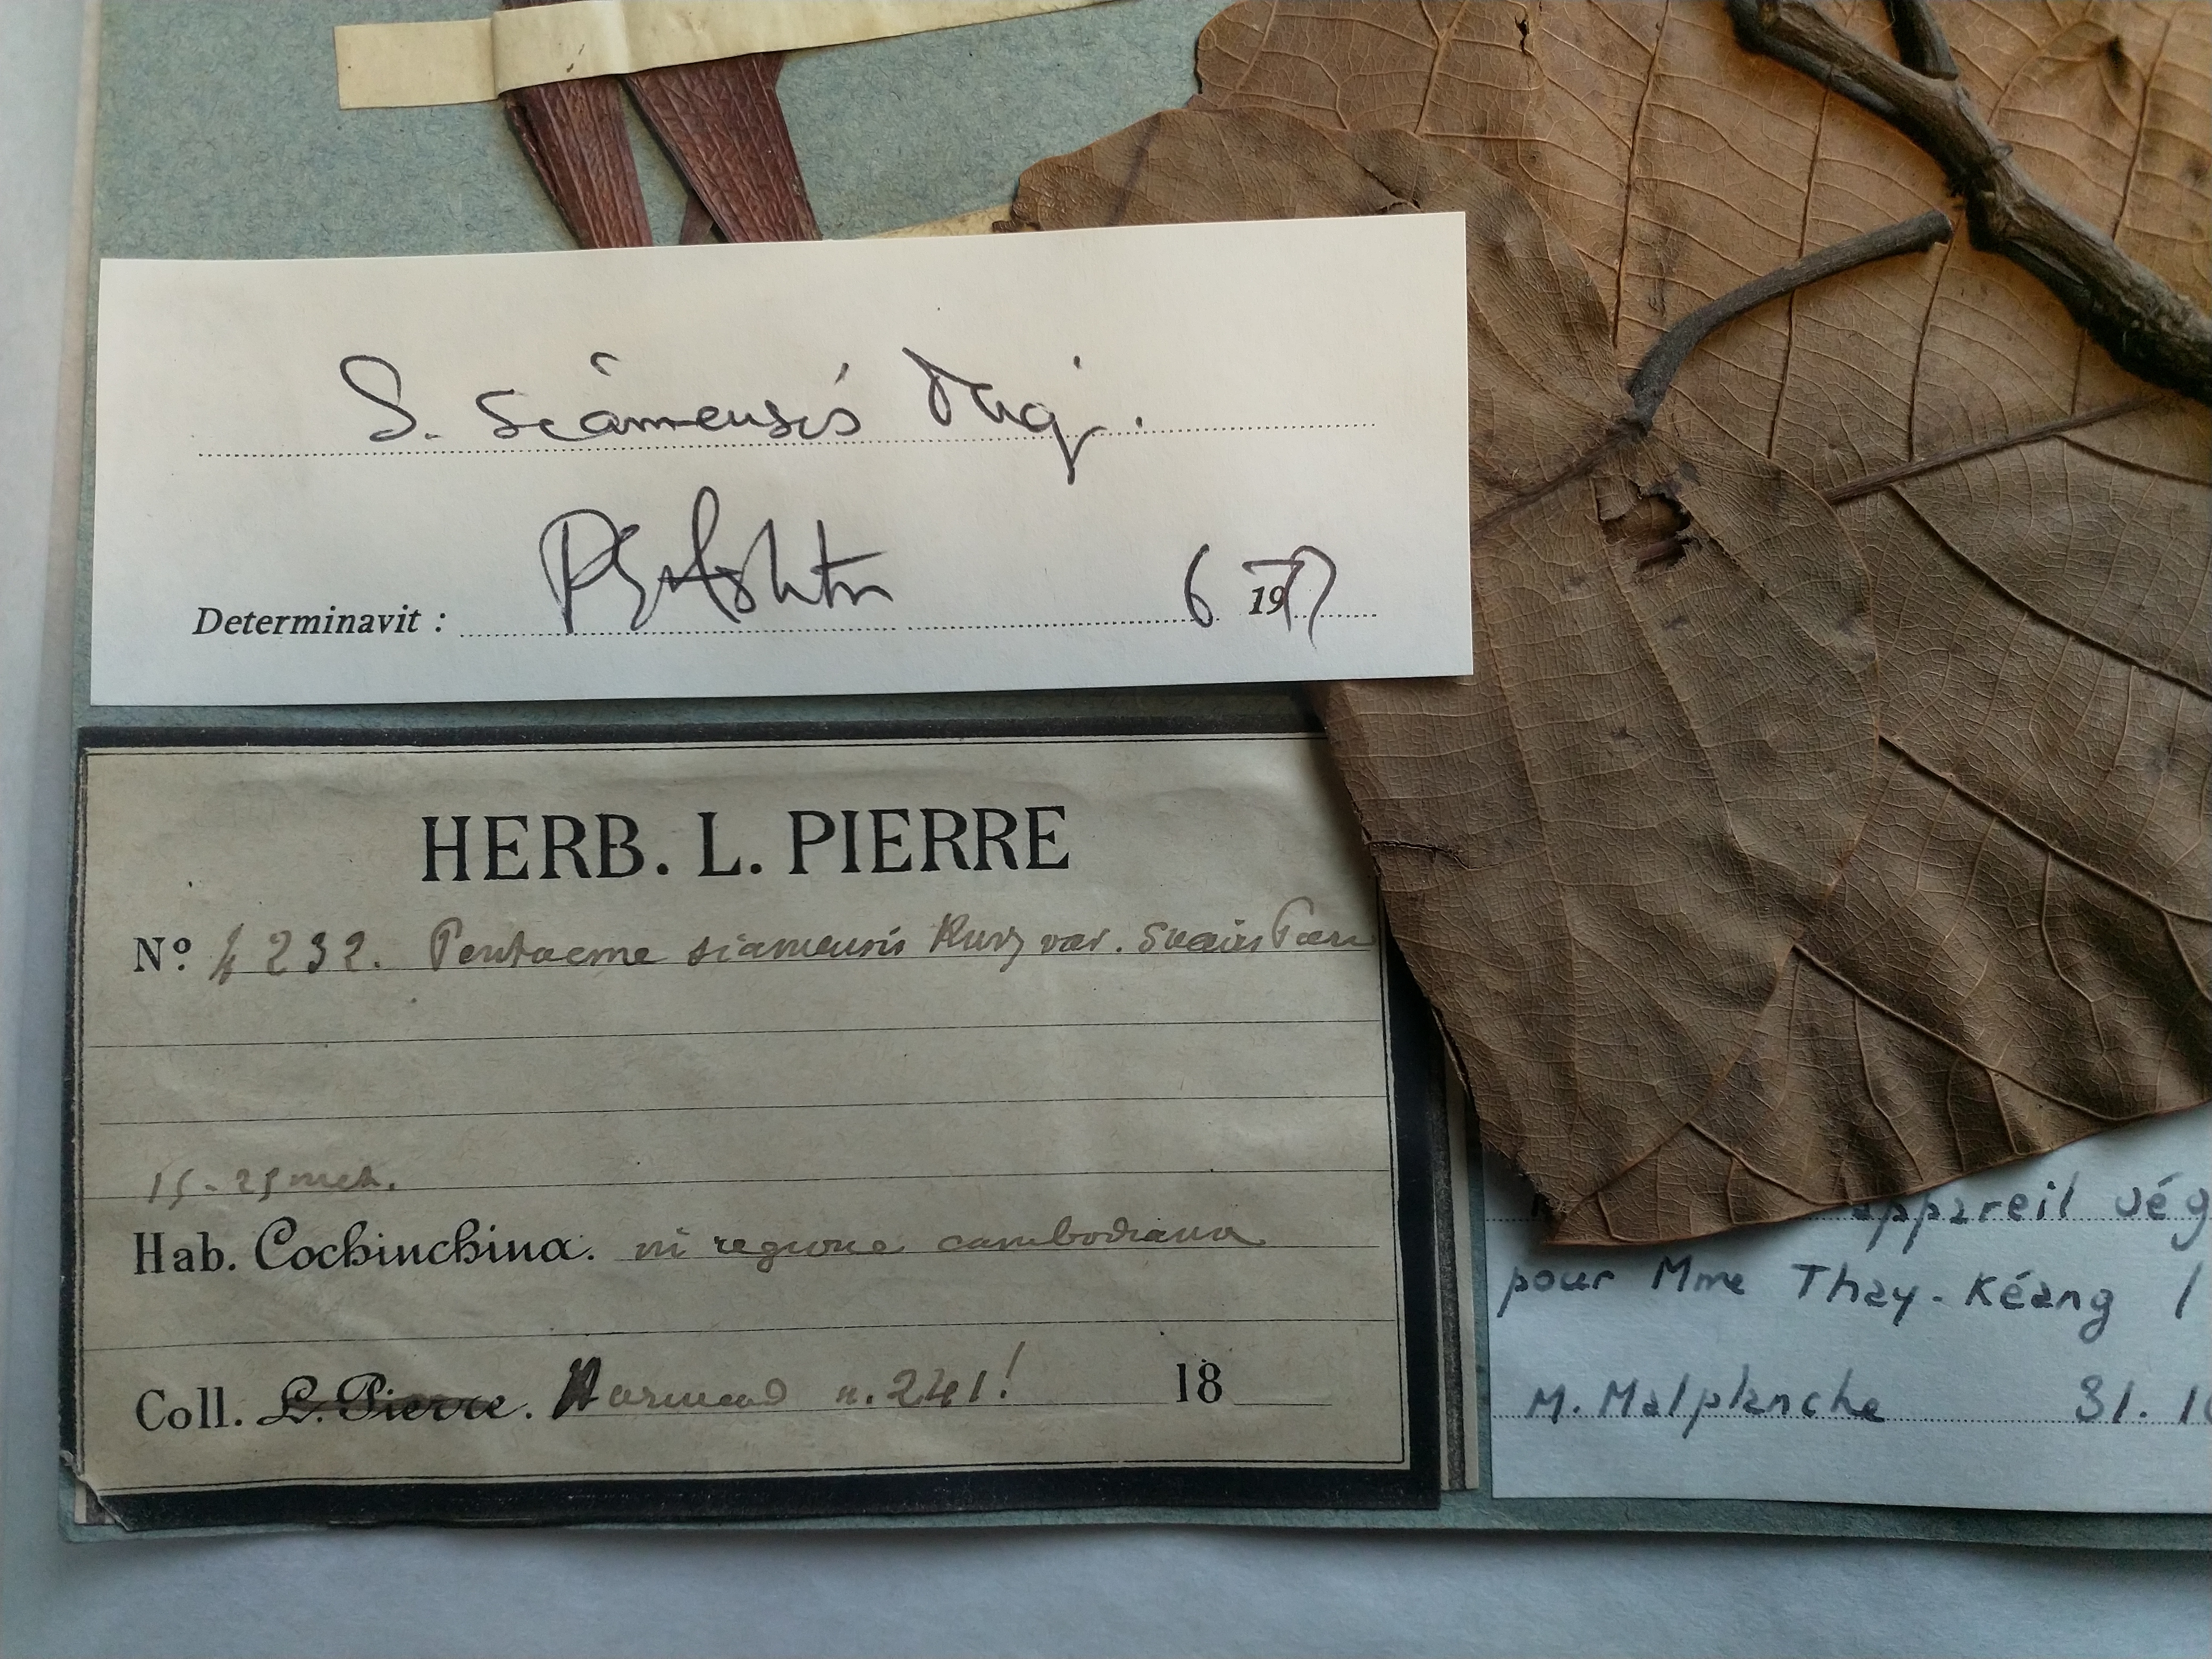 S. siamensis Miq.
Determinavit : PSAshton 6 1977
HERB. L. PIERRE
Nº 4232. Pentacme siamensis Kurz var.
15-25 met.
Hab. Cochinchina. in regione cambodiana
Coll. L. Pierre. Harmand n. 241! 18
appareil vég
pour Mme Thay-Kéang /
M. Malplanche 31. 1